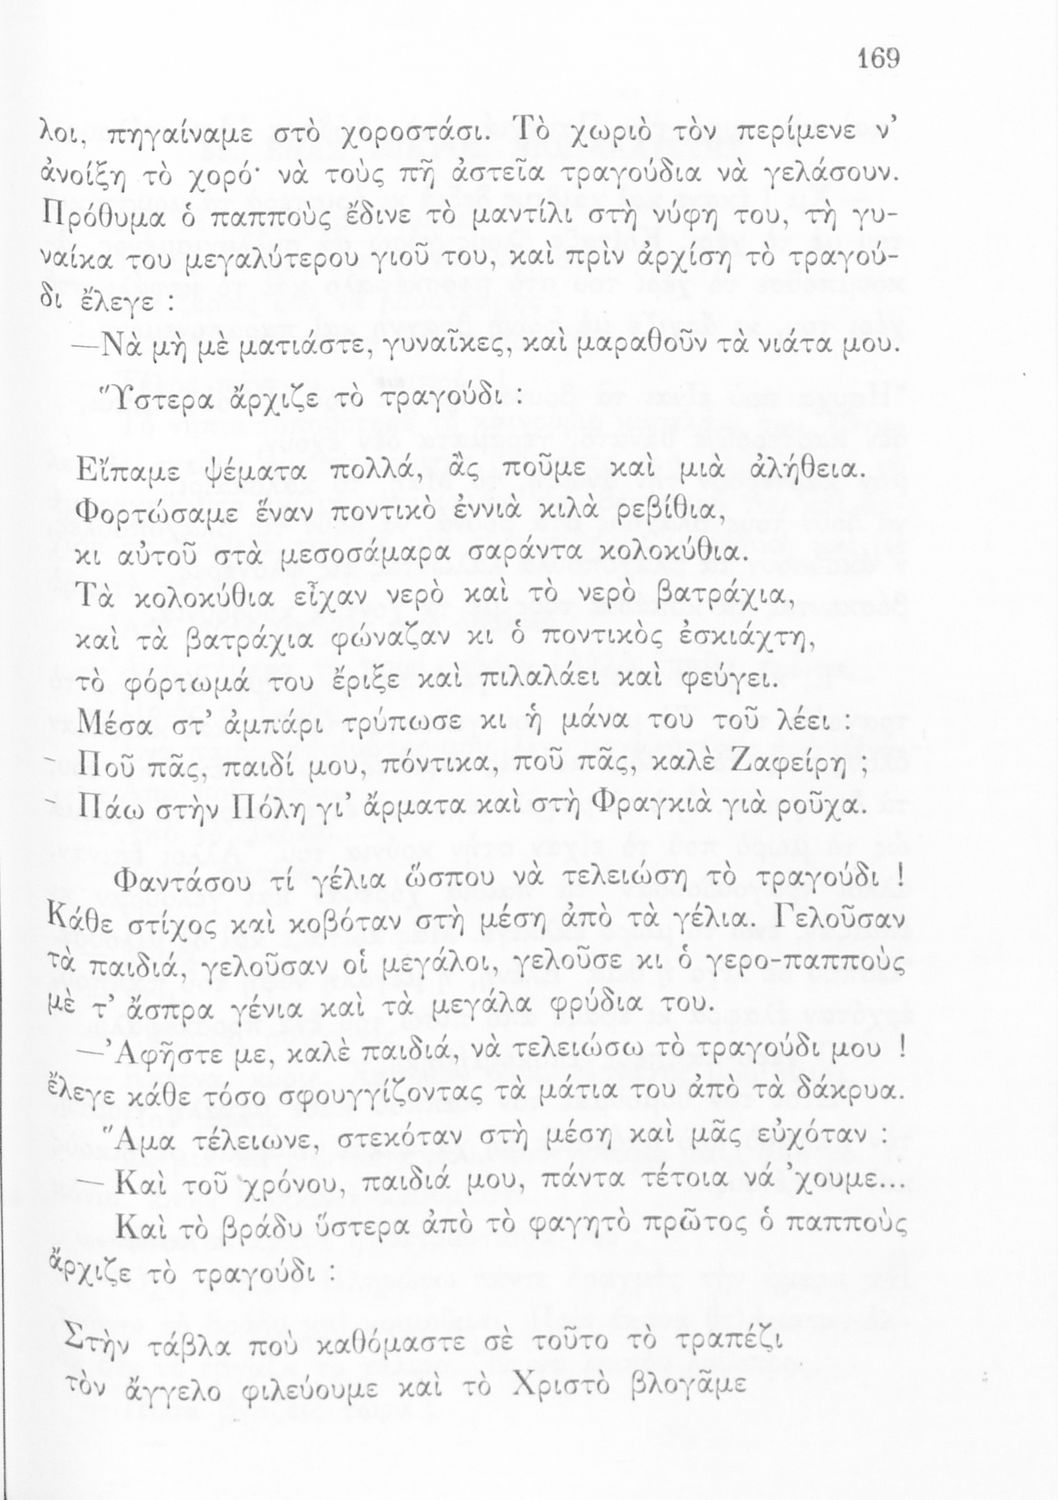 169
λοι, πηγαίναμε στὸ χοροστάσι. Τὸ χωριὸ τὸν περίμενε ν’
ἀνοίξῃ τὸ χορό· νὰ τοὺς πῇ ἀστεῖα τραγούδια νὰ γελάσουν.
Πρόθυμα ὁ παπποὺς ἔδινε τὸ μαντίλι στὴ νύφη του, τὴ γυ-
ναίκα του μεγαλύτερου γιοῦ του, καὶ πρὶν ἀρχίσῃ τὸ τραγού-
δι ἔλεγε :
—Νὰ μὴ μὲ ματιάστε, γυναῖκες, καὶ μαραθοῦν τὰ νιάτα μου.
Ὕστερα ἄρχιζε τὸ τραγούδι :
Εἴπαμε ψέματα πολλά, ἂς ποῦμε καὶ μιὰ ἀλήθεια.
Φορτώσαμε ἕναν ποντικὸ ἐννιὰ κιλὰ ρεβίθια,
κι αὐτοῦ στὰ μεσοσάμαρα σαράντα κολοκύθια.
Τὰ κολοκύθια εἶχαν νερὸ καὶ τὸ νερὸ βατράχια,
καὶ τὰ βατράχια φώναζαν κι ὁ ποντικὸς ἐσκιάχτη,
τὸ φόρτωμά του ἔριξε καὶ πιλαλάει καὶ φεύγει.
Μέσα στ’ ἀμπάρι τρύπωσε κι ἡ μάνα του τοῦ λέει :
- Ποῦ πᾶς, παιδί μου, πόντικα, ποῦ πᾶς, καλὲ Ζαφείρη ;
- Πάω στὴν Πόλη γι’ ἄρματα καὶ στὴ Φραγκιὰ γιὰ ροῦχα.
Φαντάσου τί γέλια ὥσπου νὰ τελειώσῃ τὸ τραγούδι !
Κάθε στίχος καὶ κοβόταν στὴ μέση ἀπὸ τὰ γέλια. Γελοῦσαν
τὰ παιδιά, γελοῦσαν οἱ μεγάλοι, γελοῦσε κι ὁ γερο-παπποὺς
μὲ τ’ ἄσπρα γένια καὶ τὰ μεγάλα φρύδια του.
—Ἀφῆστε με, καλὲ παιδιά, νὰ τελειώσω τὸ τραγούδι μου !
ἔλεγε κάθε τόσο σφουγγίζοντας τὰ μάτια του ἀπὸ τὰ δάκρυα.
Ἅμα τέλειωνε, στεκόταν στὴ μέση καὶ μᾶς εὐχόταν :
— Καὶ τοῦ χρόνου, παιδιά μου, πάντα τέτοια νά ’χουμε...
Καὶ τὸ βράδυ ὕστερα ἀπὸ τὸ φαγητὸ πρῶτος ὁ παπποὺς
ἄρχιζε τὸ τραγούδι :
Στὴν τάβλα ποὺ καθόμαστε σὲ τοῦτο τὸ τραπέζι
τὸν ἄγγελο φιλεύουμε καὶ τὸ Χριστὸ βλογᾶμε